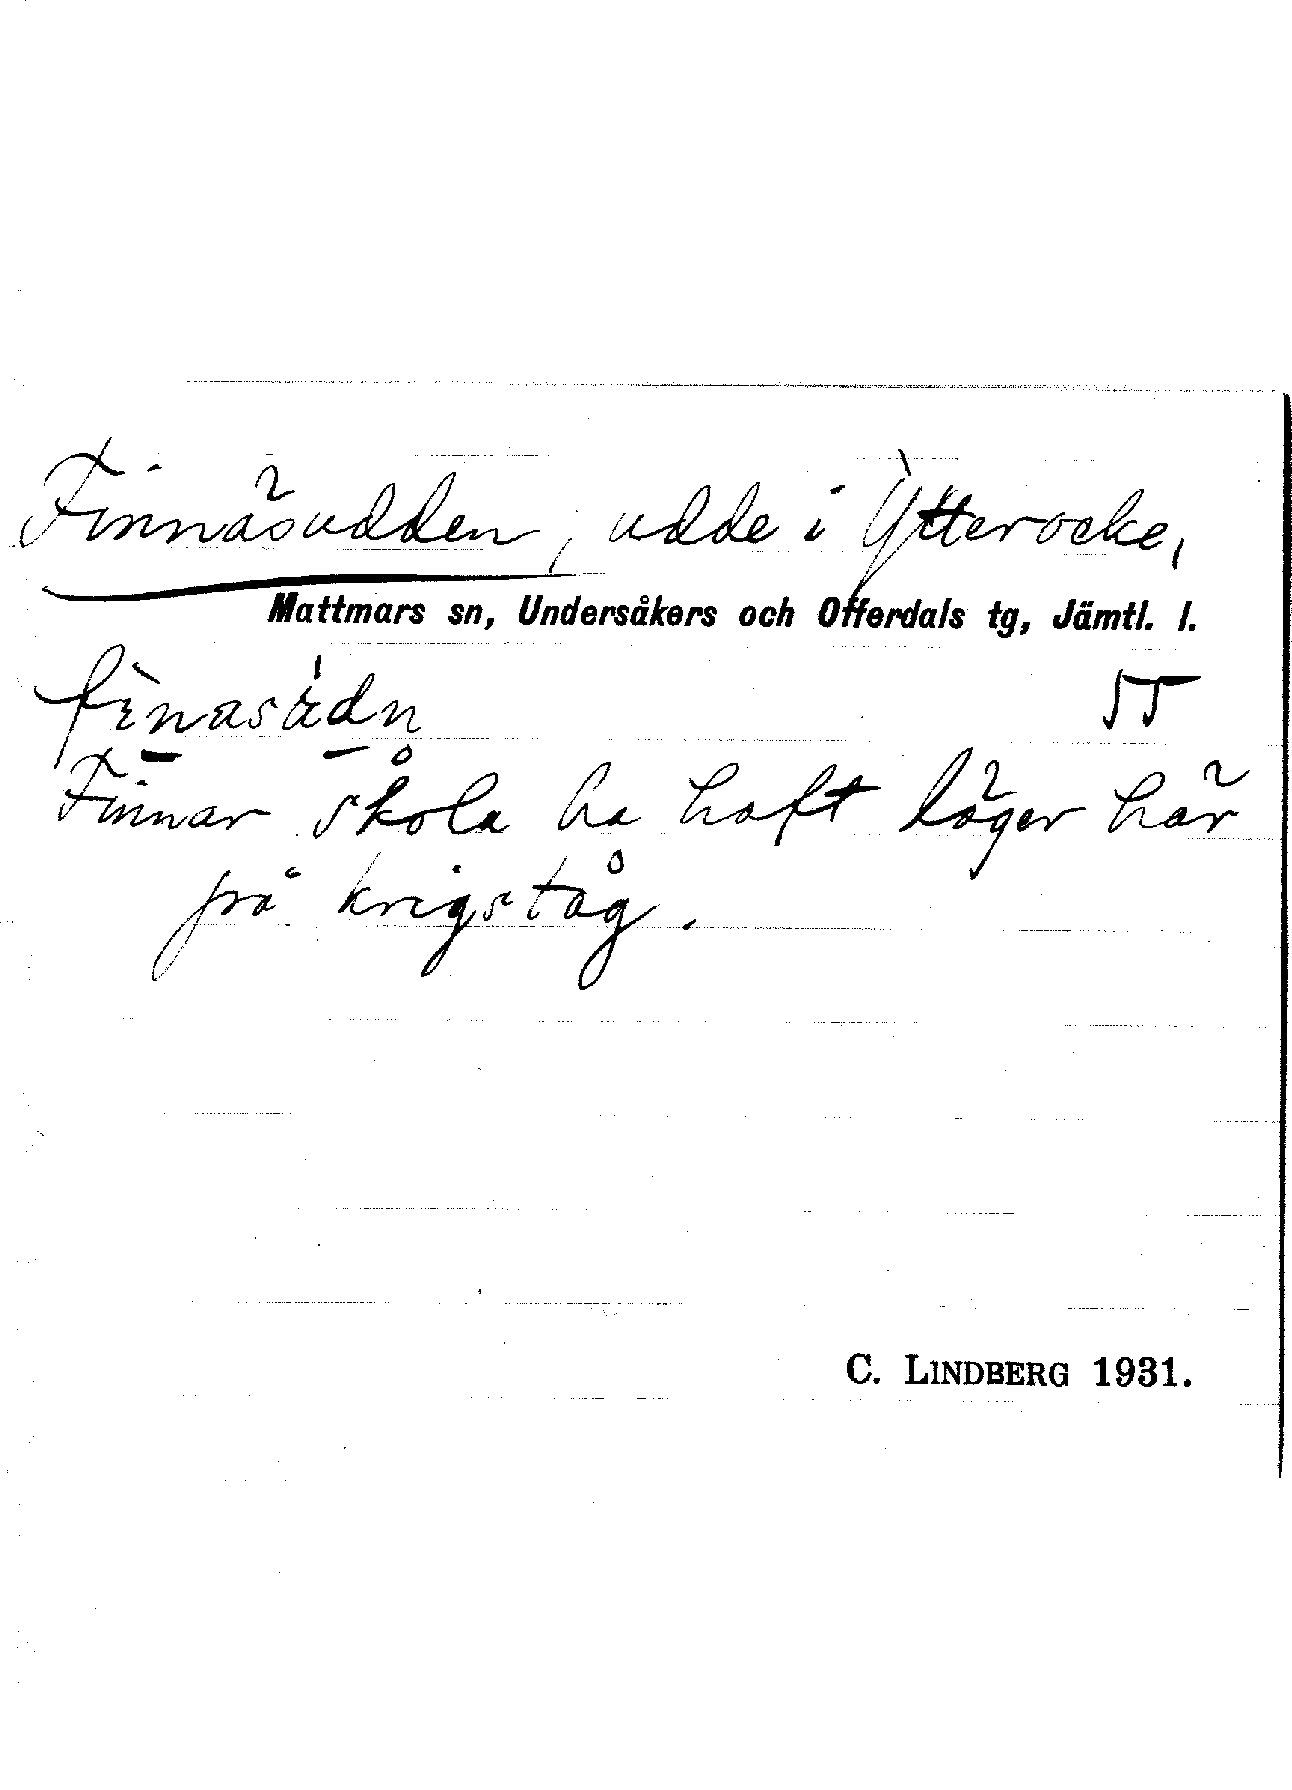 Finnäsudden, udde i Ytterocke,
Mattmars sn, Undersåkers och Offerdals tg, Jämtl. l.
55
Finnar skola ha haft läger här
på krigståg.
C. LINDBERG 1931.